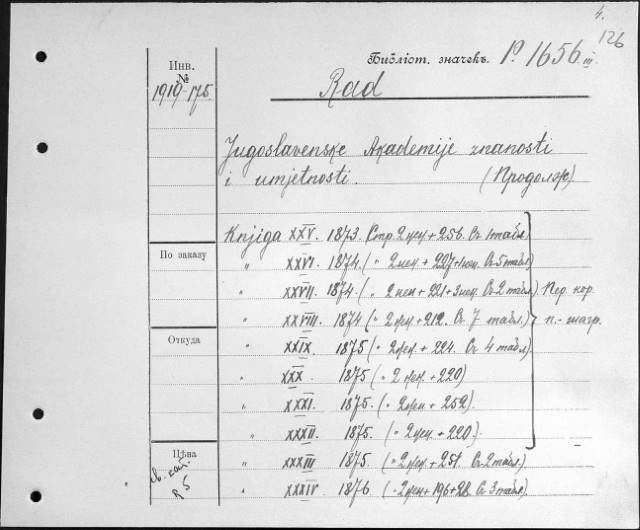 4.
126
Библіот. значекъ. P. 1656. III.
Инв.
№
1919-175
Rad
Jugoslavenske Akademije znanosti
i umjetnosti. (Продолж)
Knjiga XXV. 1873. (Стр. 2 нен + 256. Съ 1 табл.)
По заказу
" XXVI. 1874. (" 2 нен + 227 + Съ 5 табл.)
" XXVII. 1874. (" 2 нен + 221 + 3 нен. Съ 2 табл.) Пер. кор.
" XXVIII. 1874 (" 2 нен. + 212. Съ 7 табл.) п.- шагр.
Откуда
" XXIX. 1875 (" 2 нен. + 224. Съ 4 табл.)
" XXX. 1875 (" 2 нен. + 220)
" XXXI. 1875. (" 2 нен + 252).
" XXXII. 1875. (" 2 нен. + 220).
Цѣна
" XXXIII 1875. (" 2 нен. + 251. Съ 2 табл.)
" XXXIV. 1876. (" 2 нен + 196 + Съ 3 табл.)